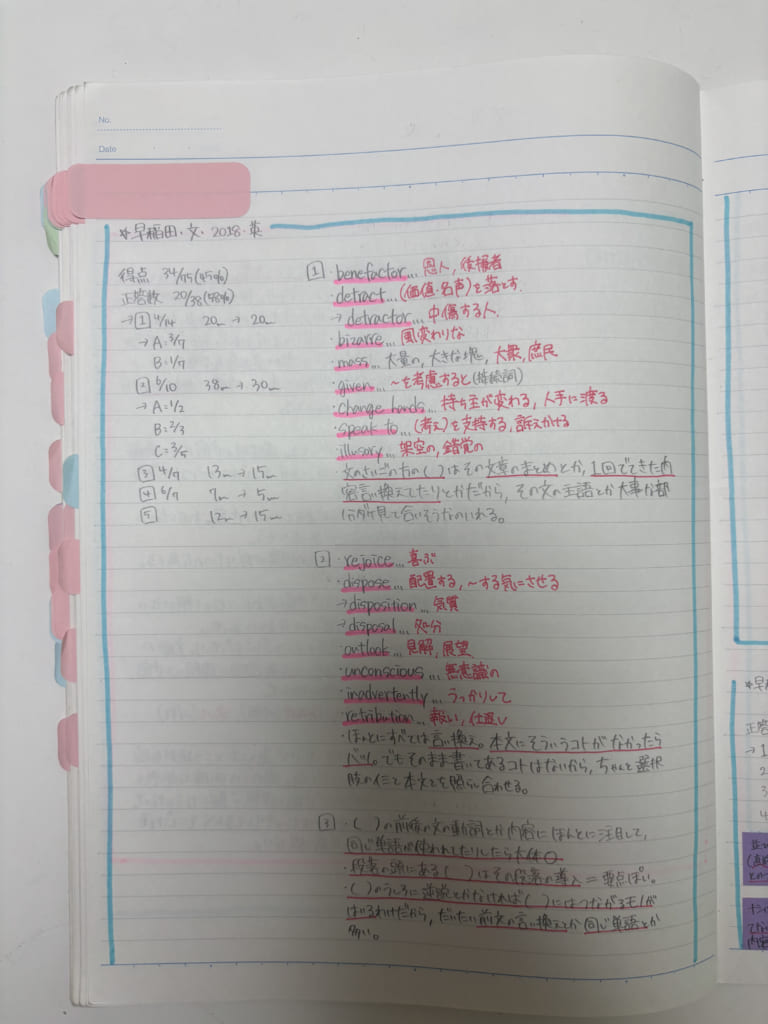 No.
Date
*早稲田・文・2018・英
得点 34/75(45%)
正答数 20/38(58%)
→1 4/14 20m→20m
→A=3/7
B=1/7
2 6/10 38m→30m
→A=1/2
B=2/3
C=3/5
3 4/7 13m→15m
4 6/7 7m→5m
5 12m→15m
1 ・benefactor…恩人, 後援者
・detract…(価値・名声)を落とす.
→detractor…中傷する人.
・bizarre…風変わりな
・mass…大量の, 大きな塊, 大衆, 庶民
・given…～を考慮すると(接続詞)
・change hands…持ち主が変わる, 人手に渡る
・speak to…(考え)を支持する, 訴えかける
・illusory…架空の, 錯覚の
・文のさいごの方の( )はその文章のまとめとか, 1回でてきた内
容言い換えてたりとかだから, その文の主語とか大事な部
分だけ見て合いそうなのいれる。
2 ・rejoice…喜ぶ
・dispose…配置する, ～する気にさせる
→disposition…気質
→disposal…処分
・outlook…見解, 展望
・unconscious…無意識の
・inadvertently…うっかりして
・retribution…報い, 仕返し
・ほんとにすべては言い換え。本文にそういうコトがなかったら
バツ。でもそのまま書いてあるコトはないから, ちゃんと選択
肢の仁と本文とを照らし合わせる。
3 ・( )の前後の文の動詞とか内容にほんとに注目して,
同じ単語が使われてたりしたら大体○
・段落の頭にある( )はその段落の導入=要点ぽい。
・( )のうしろに逆説とかなければ( )にはつながるモノが
はいるわけだから, だいたい前文の言い換えとか同じ単語とか
多い。
*早
正答
→1
2
3
4